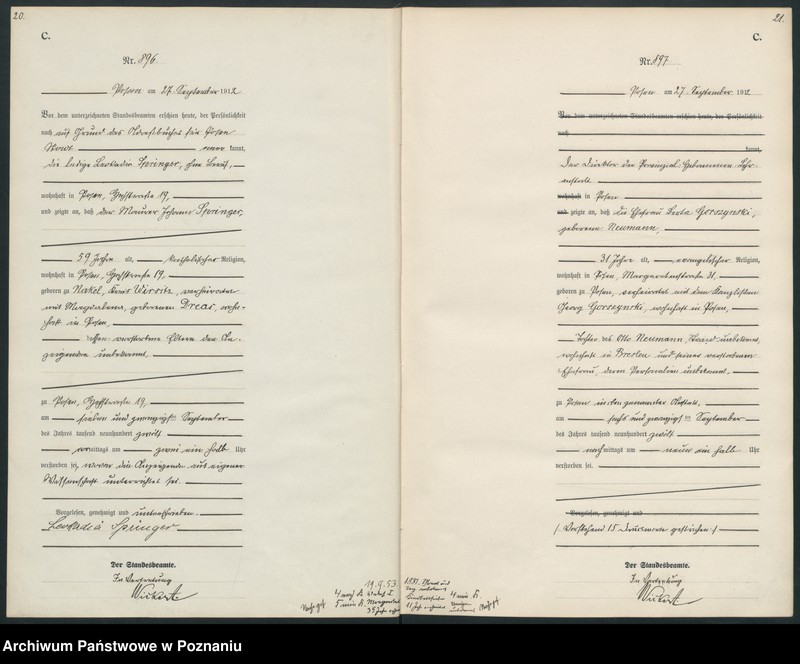 20.
C.
Nr. 896.
Posen am 27. September 1912
Vor dem unterzeichneten Standesbeamten erschien heute, der Persönlichkeit
nach auf Grund des für Posen
Stadt kannt,
die ledige Leokadia Springer, ohne Beruf,
wohnhaft in Posen, 19,
und zeigte an, daß der Maurer Johann Springer,
59 Jahre alt, katholischer Religion,
wohnhaft in Posen, 19,
geboren zu Nakel, Kreis Wirsitz, verheiratet
mit Magdalena, geborenen Dreas, wohn-
haft in Posen,
dessen verstorbene Eltern der An-
zeigenden unbekannt,
zu Posen, 19,
am sieben und zwanzigsten September
des Jahres tausend neunhundert zwölf
vormittags um zwei ein halb Uhr
verstorben sei, wovon die Anzeigende aus eigener
Wissenschaft unterrichtet sei.
Vorgelesen, genehmigt und unterschrieben.
Leokadia Springer
Der Standesbeamte.
In Vertretung
21.
C.
Nr. 897
Posen am 27. September 1912
Vor dem unterzeichneten Standesbeamten erschien heute, der Persönlichkeit
nach
kannt,
Der Direktor der Provinzial-Hebammen-Lehr-
anstalt
wohnhaft in Posen
und zeigte an, daß die Ehefrau Berta Gorszynski,
geborene Neumann,
31 Jahre alt, evangelischer Religion,
wohnhaft in Posen, Margaretenstraße 31,
geboren zu Posen, verheiratet mit dem Kanzlisten
Georg Gorszynski, wohnhaft in Posen,
Tochter des Otto Neumann, Stand unbekannt,
wohnhaft in Breslau und seiner verstorbenen
Ehefrau, deren Personalien unbekannt,
zu Posen in der genannten Anstalt,
am sechs und zwanzigsten September
des Jahres tausend neunhundert zwölf
nachmittags um neun ein halb Uhr
verstorben sei.
Vorgelesen, genehmigt und
(Vorstehend 15 Druckworte gestrichen.)
Der Standesbeamte.
In Vertretung
19.9.53.
Archiwum Państwowe w Poznaniu